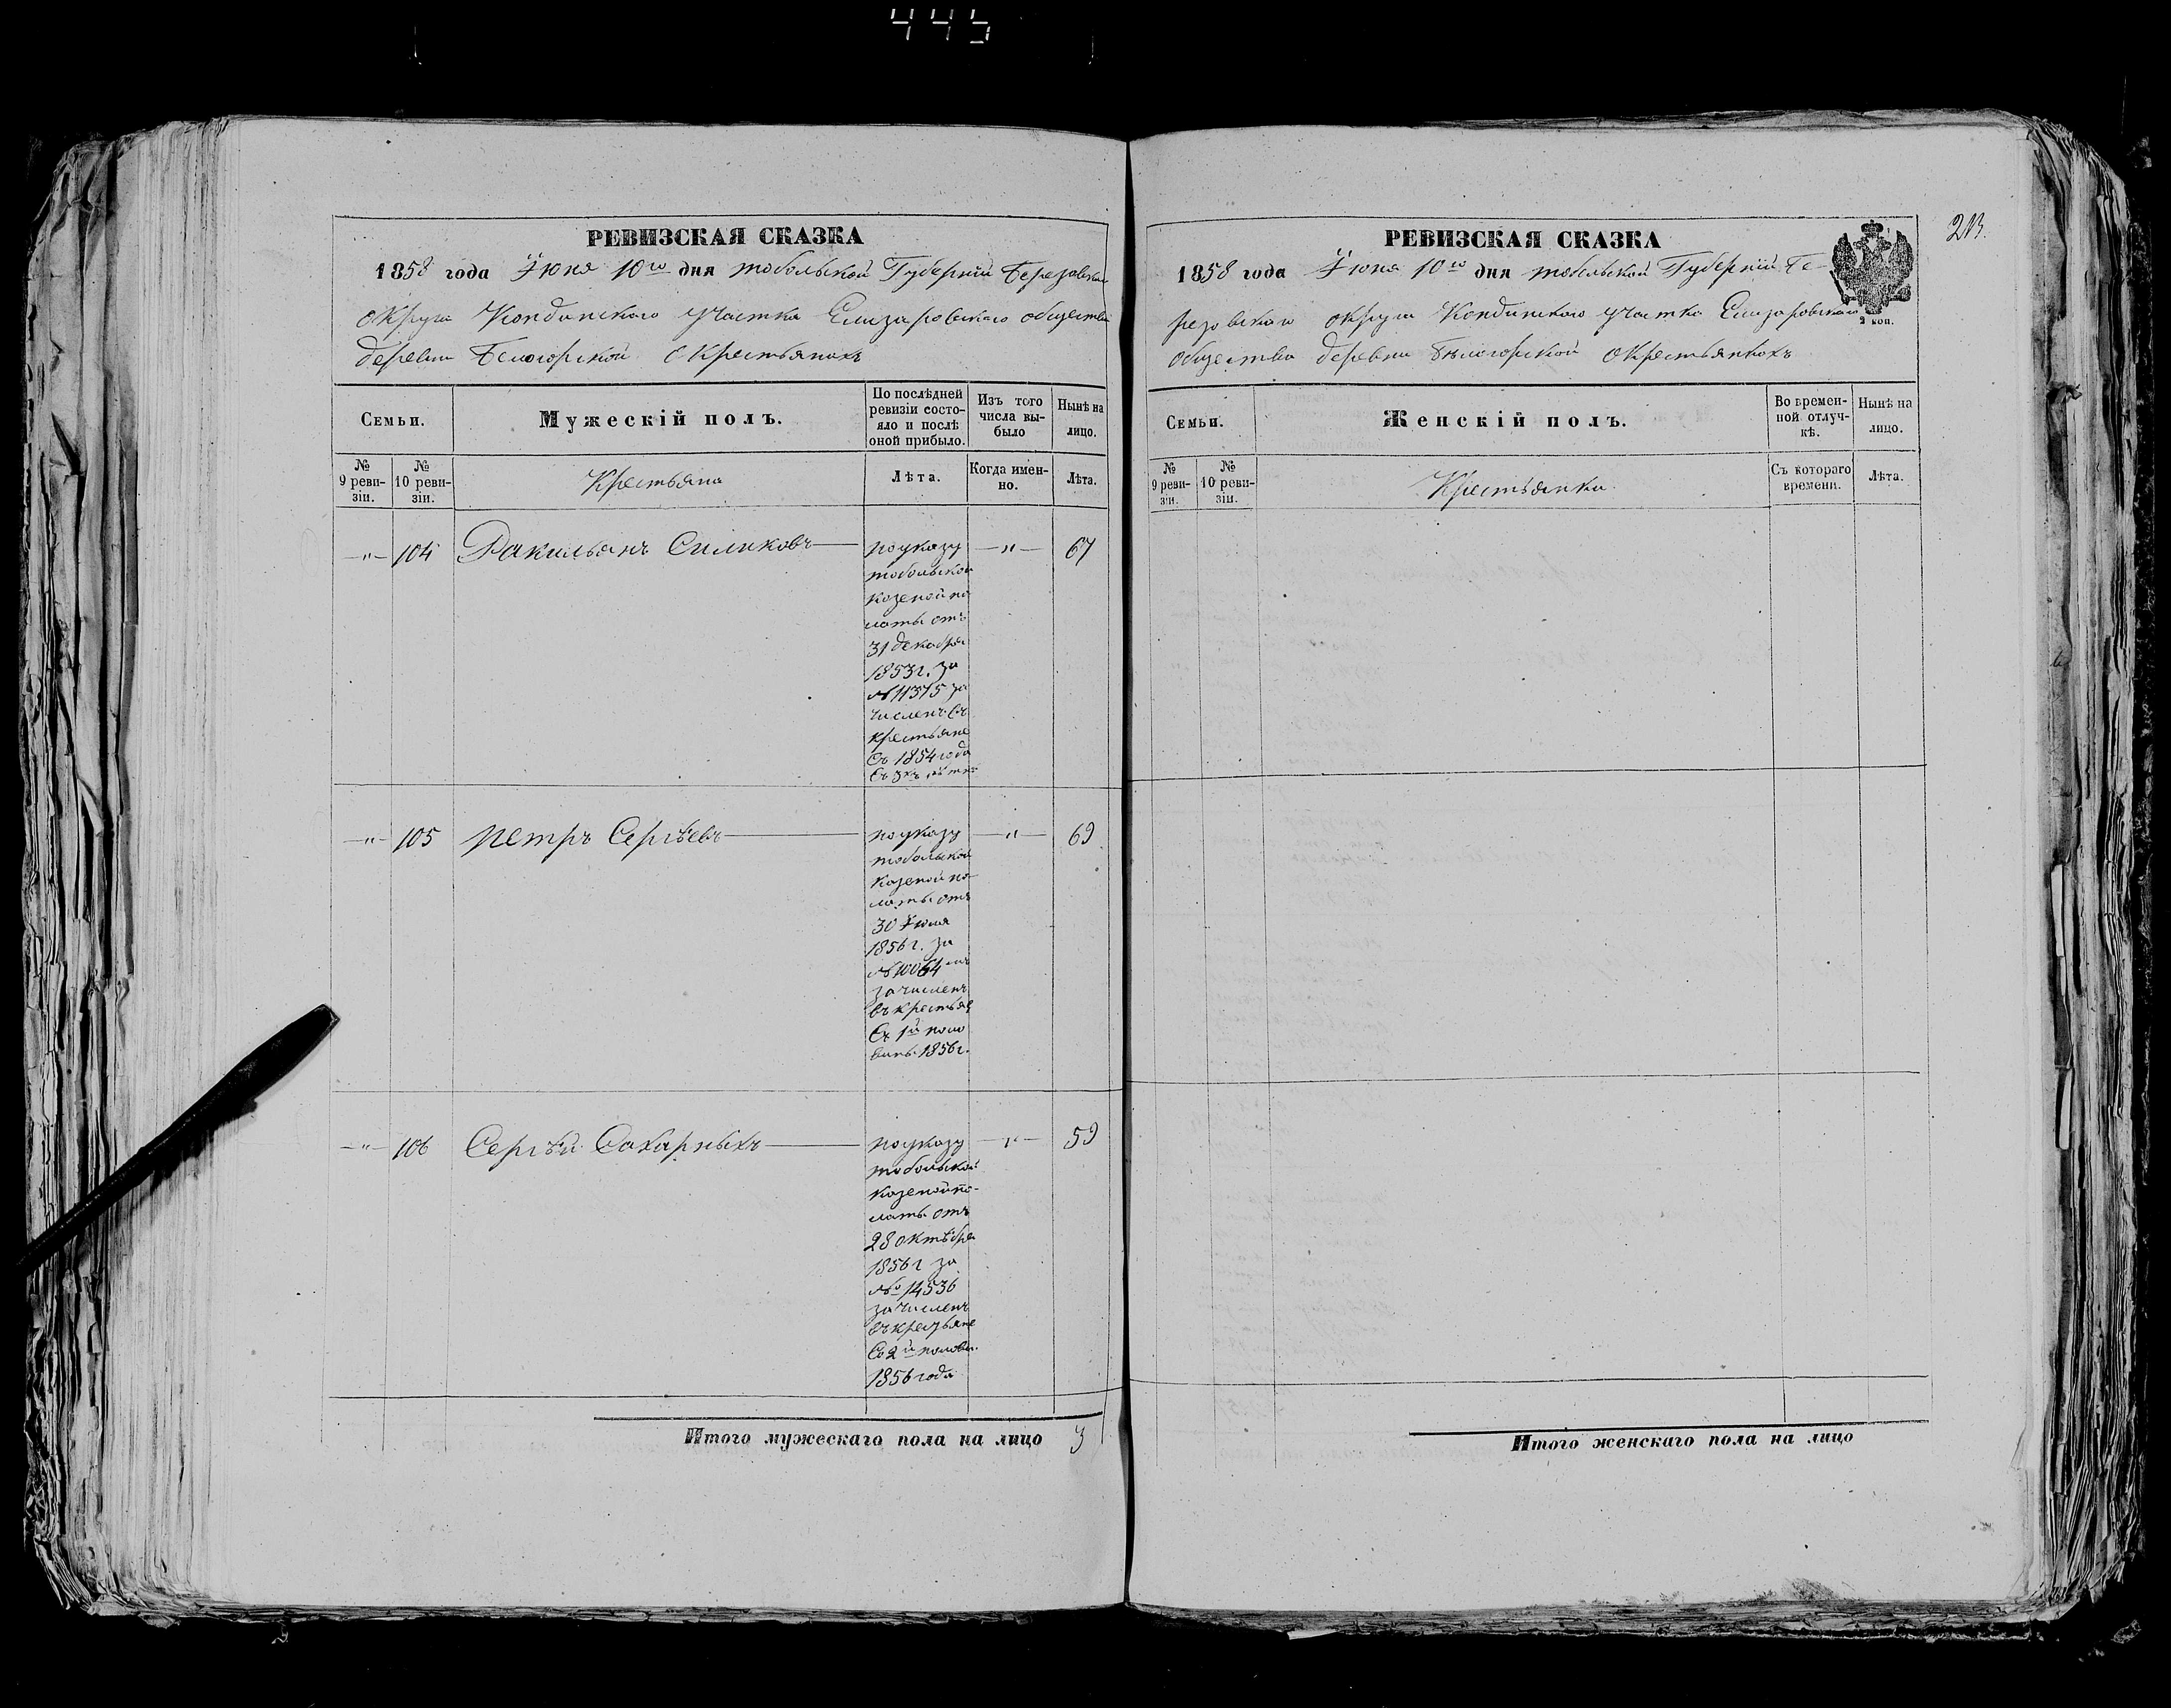 445
РЕВИЗСКАЯ СКАЗКА
1858 года Іюня 10го дня тобольской Губерніи Березовскаго
округа Кондинского участка Елизаровского общества
деревни Белогорской о Крестьянахъ
Семьи.
Мужескій полъ.
По послѣдней ревизіи состо-
яло и послѣ
оной прибыло.
Изъ того
числа вы-
было
Нынѣ на
лицо.
№
9 реви-
зіи.
№
10 реви-
зіи.
Крестьяна
Лѣта.
Когда имен-
но.
Лѣта.
—"— 104 Ракильянъ Силиковъ — по указу —"— 67
тобольской
казеной па
латы отъ
31 декабря
1853 г. за
№ 11375 за
численъ въ
крестьяне
съ 1854 года
—"— 105 петръ Сергѣевъ — по указу —"— 69
тобольской
казеной па-
латы отъ
30 Іюля
1856 г. за
№ 10064
зачисленъ
въ крестьяне
съ 1й поло
вины 1856 г.
—"— 106 Сергѣй Сахарныхъ — по указу —"— 59
тобольской
казеной па-
латы отъ
28 октября
1856 г за
№ 14536
зачисленъ
въ крестьяне
со 2й полови.
1856 года
Итого мужескаго пола на лицо 3
213.
РЕВИЗСКАЯ СКАЗКА
1858 года Іюня 10го дня тобольской Губерніи Бе-
резовского округа Кондинского участка Елизаровского
2 коп.
общества деревни Бѣлогорской о Крестьянкахъ
Семьи.
Женскій полъ.
Во времен-
ной отлуч-
кѣ.
Нынѣ на
лицо.
№
9 реви-
зіи.
№
10 реви-
зіи.
Крестьянки
Съ котораго
времени.
Лѣта.
Итого женскаго пола на лицо